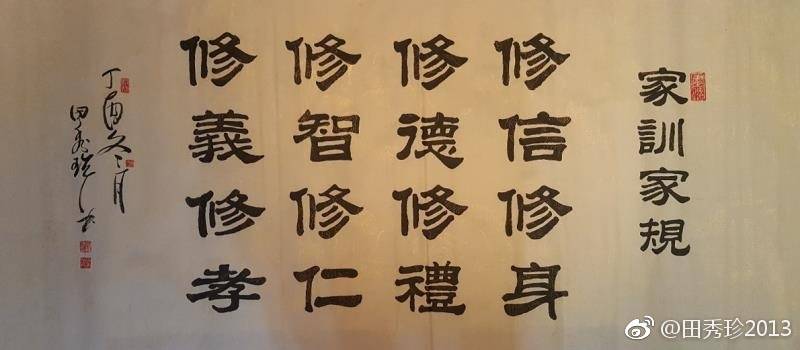 家訓家規
修信修身
修德修禮
修智修仁
修義修孝
丁酉冬月
田秀珍书
@田秀珍2013